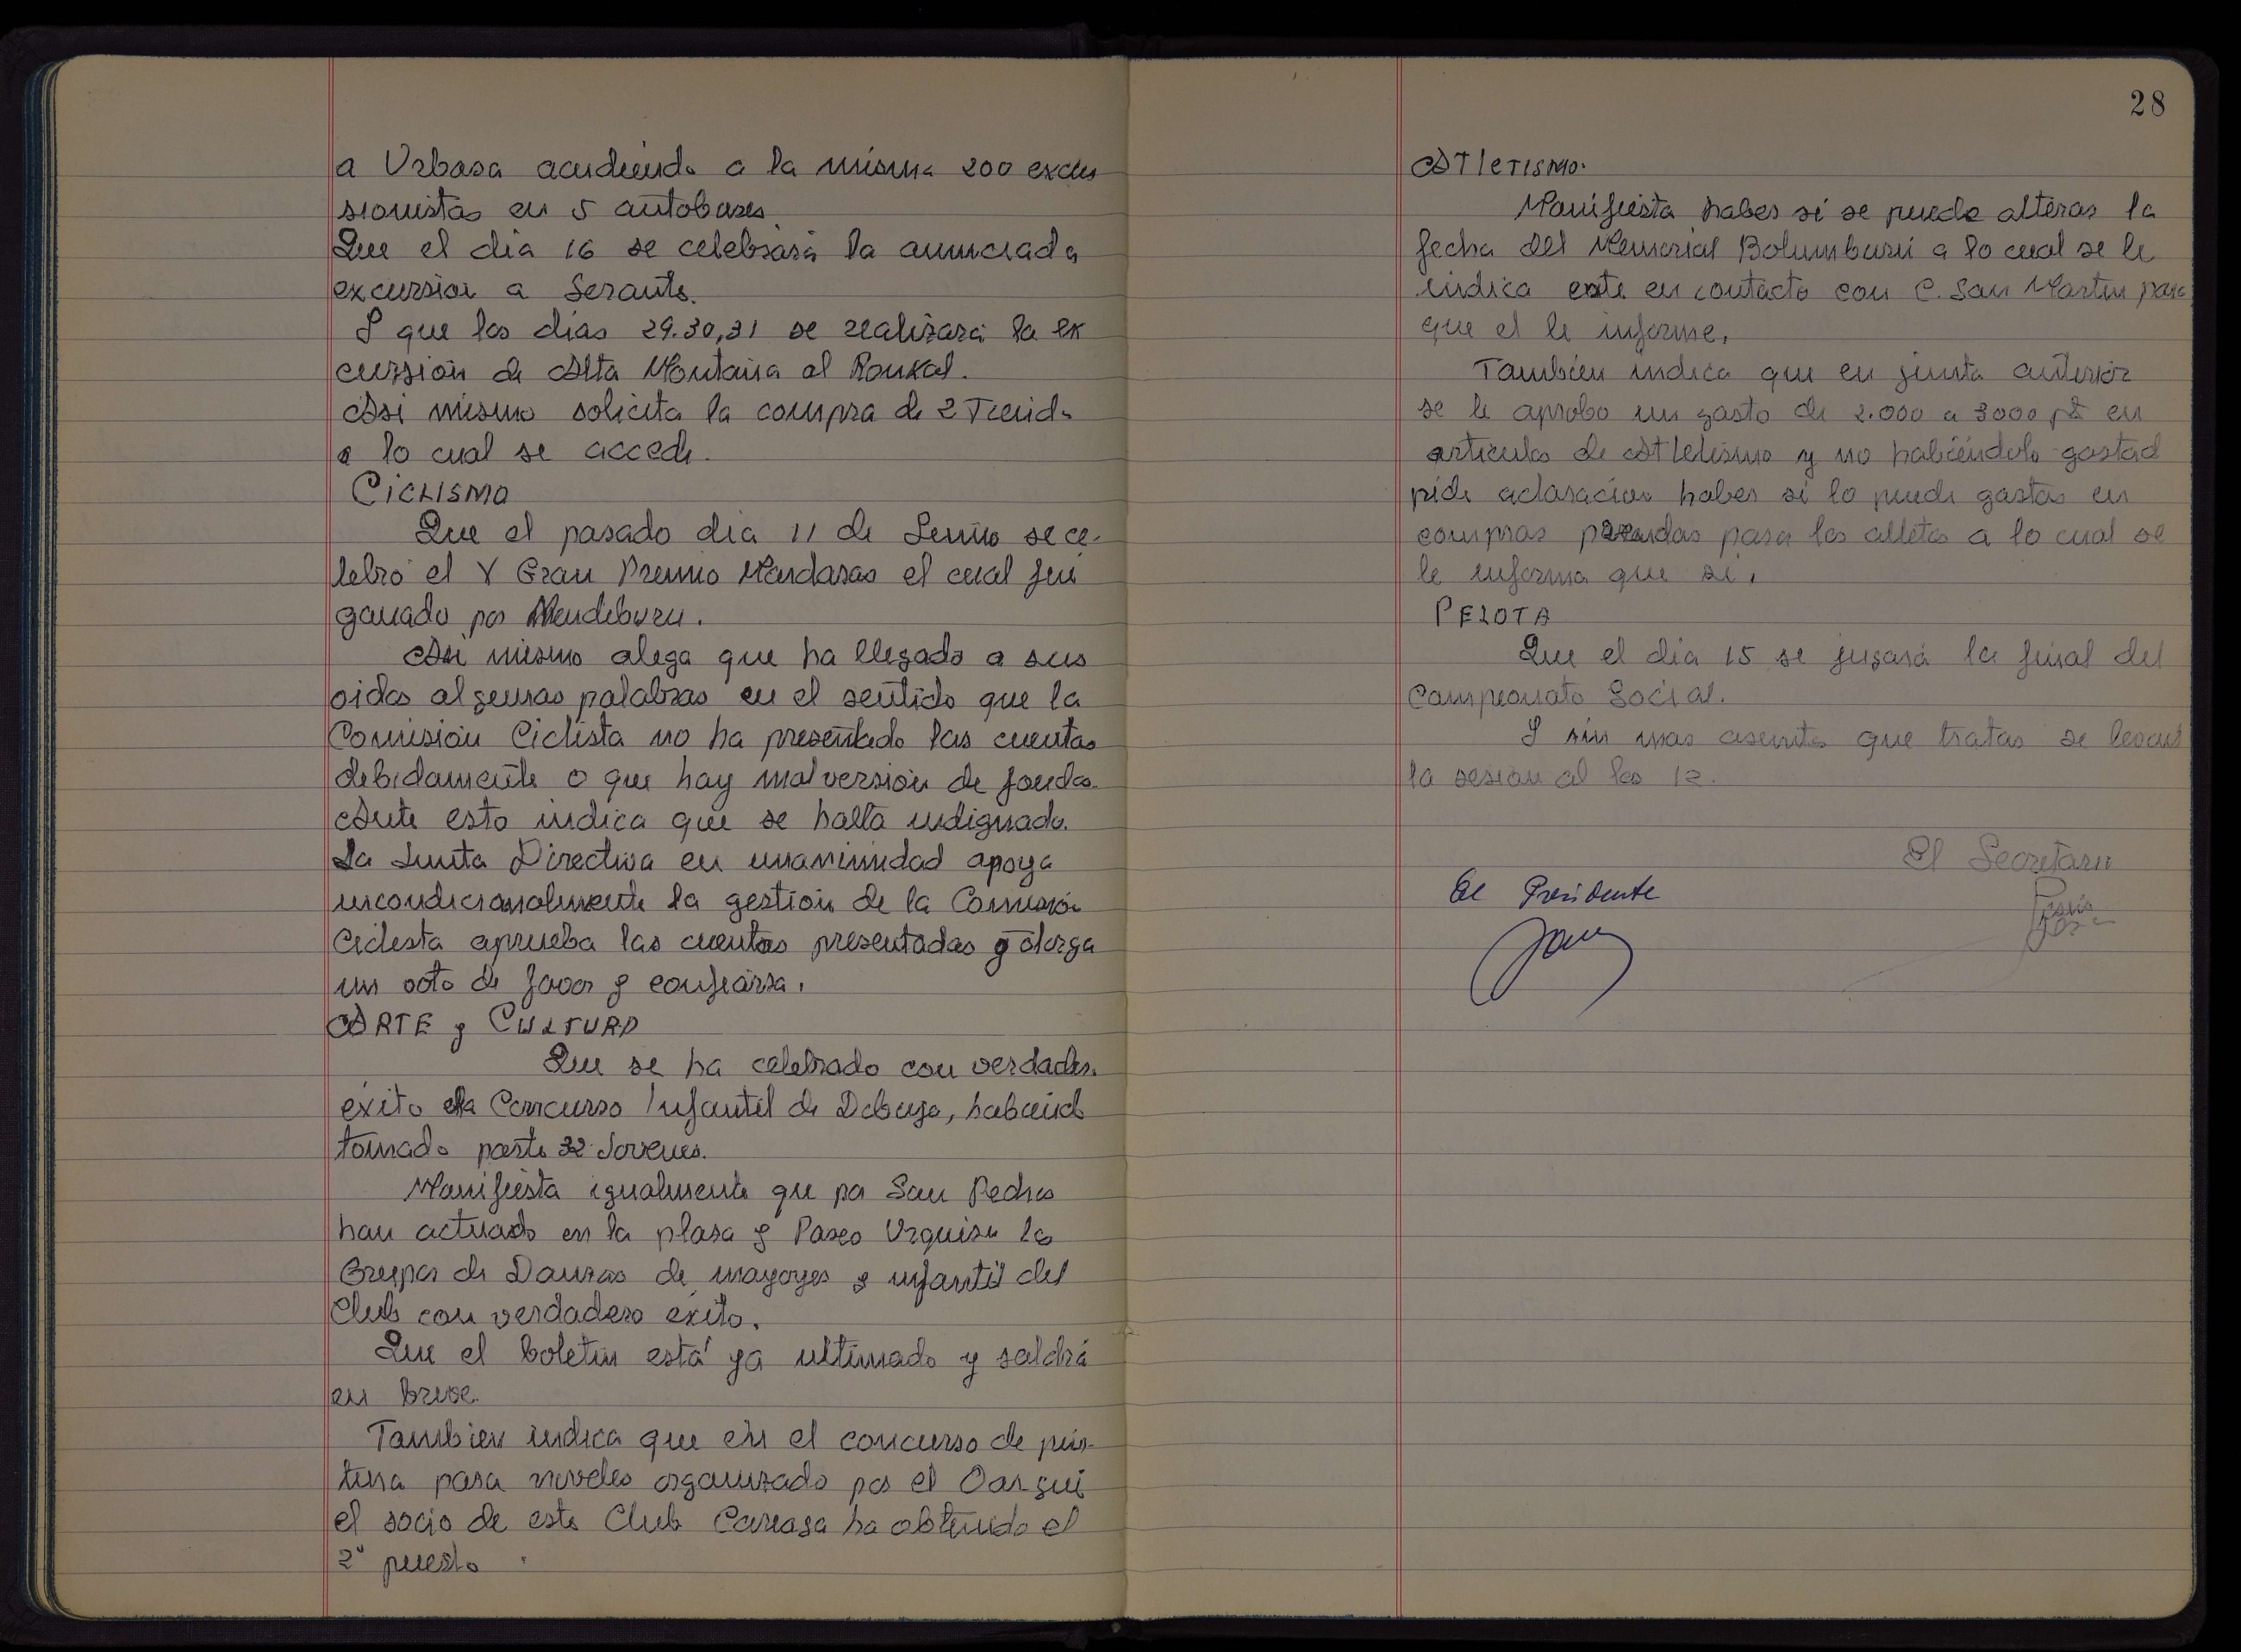 a Urbasa acudiendo a la misma 200 excur
sionistas en 5 autobuses.
Que el dia 16 se celebrará la anunciada
excursion a Serantes.
Y que los dias 29.30,31 se realizará la ex
cursión de Alta Montaña al Ronkal.
Asi mismo solicita la compra de 2 Tiendas
a lo cual se accede.
CICLISMO
Que el pasado dia 11 de Junio se ce-
lebró el V Gran Premio Mandaras el cual fué
ganado por Mendiburu.
Asi mismo alega que ha llegado a sus
oidos algunas palabras en el sentido que la
Comisión Ciclista no ha presentado las cuentas
debidamente o que hay malversión de fondos.
Ante esto indica que se halla indignado.
La Junta Directiva en unanimidad apoya
incondicionalmente la gestión de la Comisión
Ciclista aprueba las cuentas presentadas y otorga
un voto de favor y confianza.
ARTE y CULTURA
Que se ha celebrado con verdadero
éxito el Concurso Infantil de Dibujo, habiendo
tomado parte 32 Jovenes.
Manifiesta igualmente que por San Pedro
han actuado en la plaza y Paseo Urquizu los
Grupos de Danzas de mayores e infantil del
Club con verdadero exito.
Que el boletin está ya ultimado y saldrá
en breve.
Tambien indica que en el concurso de pin-
tura para noveles organizado por el Oargui
el socio de este Club ha obtenido el
2º puesto
28
ATLETISMO.
Manifiesta haber si se puede alterar la
fecha del Memorial Bolumburu a lo cual se le
indica este en contacto con C. San Martin para
que el le informe.
Tambien indica que en junta anterior
se le aprobo un gasto de 2.000 a 3000 pts en
articulos de Atletismo y no habiéndolo gastado
pide aclaracion haber si lo puede gastar en
compras prendas para los atletas a lo cual se
le informa que si.
PELOTA
Que el dia 15 se jugará la final del
Campeonato Social.
Y sin mas asuntos que tratar se levanta
la sesión al las 12.
El Secretario
El Presidente